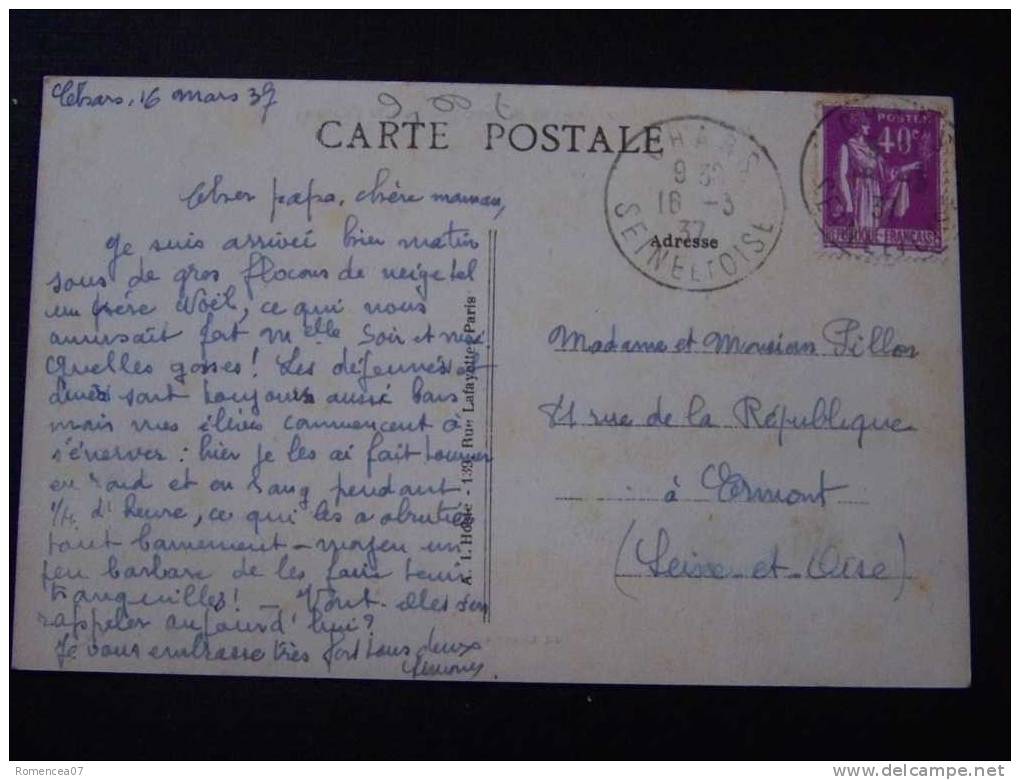 Chars, 16 mars 37
CARTE POSTALE
Cher papa, chère maman,
Je suis arrivée hier matin
sous de gros flocons de neige tel
un père Noël, ce qui nous
amusait fort Melle Soir et moi
Quelles gosses! Les déjeuners et
diners sont toujours aussi bons
mais mes élèves commencent à
s'énerver : hier je les ai fait tourner
en rond et en rang pendant
1/4 d'heure, ce qui les a
tout - moyen un
peu barbare de les faire tenir
tranquilles! - Vont-elles s'en
rappeler aujourd'hui?
Je vous embrasse très fort tous deux
Simone.
A. I. - 139, Rue Lafayette, Paris
CHARS
9 30
16 - 3
37
SEINE ET OISE
POSTES
40c
REPUBLIQUE FRANCAISE
37
Adresse
Madame et Monsieur Pillon
rue de la République
à Ermont
(Seine-et-Oise)
Romencea07
www.delcampe.net